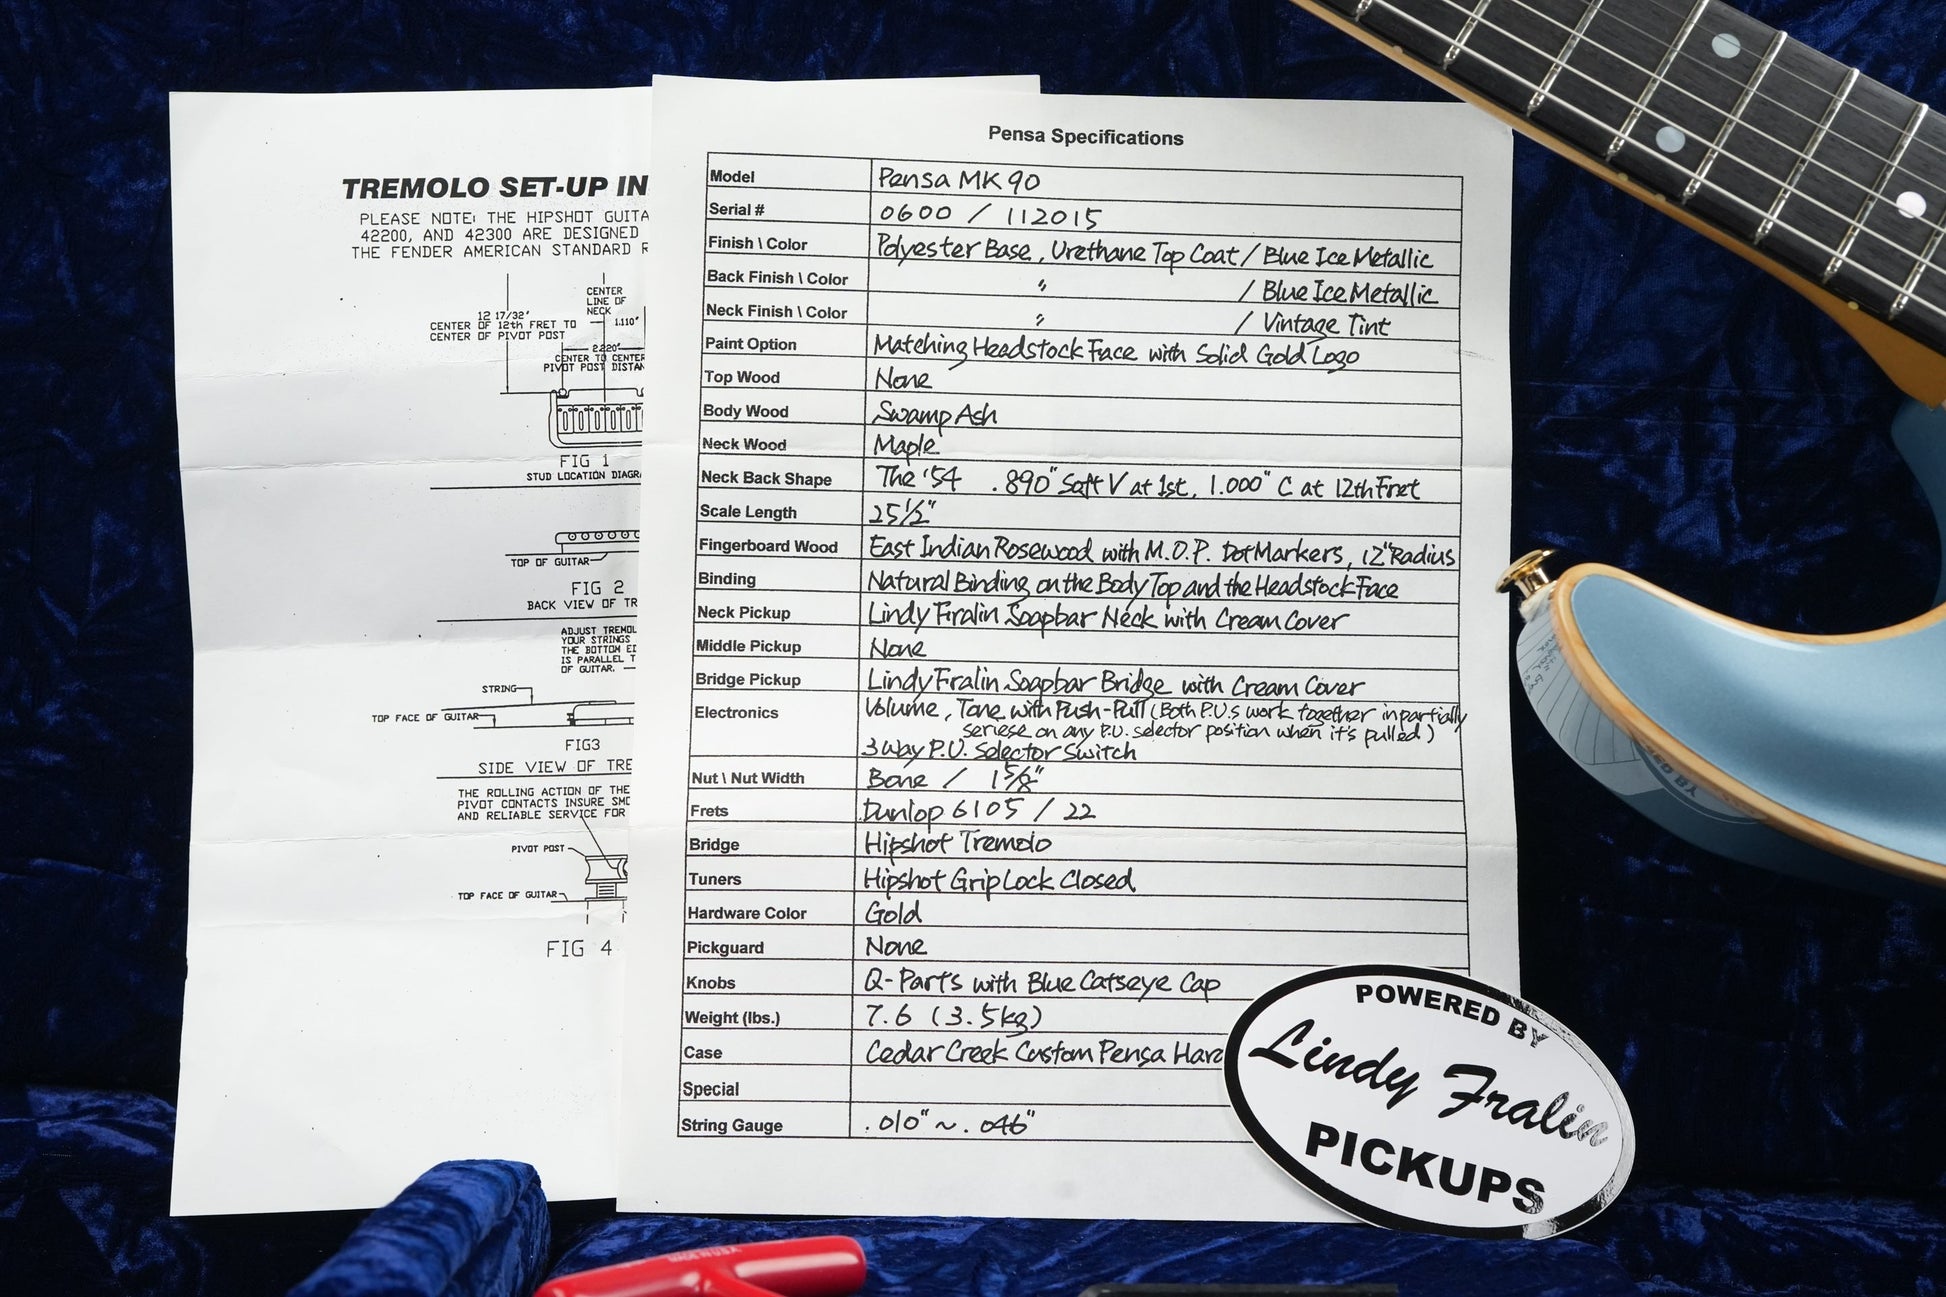 TREMOLO SET-UP IN
PLEASE NOTE: THE HIPSHOT GUITA
42200, AND 42300 ARE DESIGNED
THE FENDER AMERICAN STANDARD R
CENTER
LINE OF
NECK
12 17/32"
CENTER OF 12th FRET TO
CENTER OF PIVOT POST
1.110"
2.220"
CENTER TO CENTER
PIVOT POST DISTAN
FIG 1
STUD LOCATION DIAGRA
TOP OF GUITAR
FIG 2
BACK VIEW OF TR
ADJUST TREMOL
YOUR STRINGS
THE BOTTOM ED
IS PARALLEL T
OF GUITAR.
STRING
TOP FACE OF GUITAR
FIG3
SIDE VIEW OF TRE
THE ROLLING ACTION OF THE
PIVOT CONTACTS INSURE SMO
AND RELIABLE SERVICE FOR
PIVOT POST
TOP FACE OF GUITAR
FIG 4
Pensa Specifications
Model Pensa MK 90
Serial # 0600 / 112015
Finish \ Color Polyester Base, Urethane Top Coat / Blue Ice Metallic
Back Finish \ Color " / Blue Ice Metallic
Neck Finish \ Color " / Vintage Tint
Paint Option Matching Headstock Face with Solid Gold Logo
Top Wood None
Body Wood Swamp Ash
Neck Wood Maple
Neck Back Shape The '54 .890" Soft V at 1st, 1.000" C at 12th Fret
Scale Length 25 1/2"
Fingerboard Wood East Indian Rosewood with M.O.P. Dot Markers, 12" Radius
Binding Natural Binding on the Body Top and the Headstock Face
Neck Pickup Lindy Firalin Soapbar Neck with Cream Cover
Middle Pickup None
Bridge Pickup Lindy Fralin Soapbar Bridge with Cream Cover
Electronics Volume, Tone with Push-Pull (Both P.U.s work together in partially
seriese on any P.U. selector position when it's pulled)
3 Way P.U. Selector Switch
Nut \ Nut Width Bone / 1 5/8"
Frets Dunlop 6105 / 22
Bridge Hipshot Tremolo
Tuners Hipshot Grip Lock Closed
Hardware Color Gold
Pickguard None
Knobs Q-Parts with Blue Catseye Cap
Weight (lbs.) 7.6 (3.5kg)
Case Cedar Creek Custom Pensa Hard
Special
String Gauge .010" ~ .046"
POWERED BY
Lindy Fralin
PICKUPS
MADE IN U.S.A.